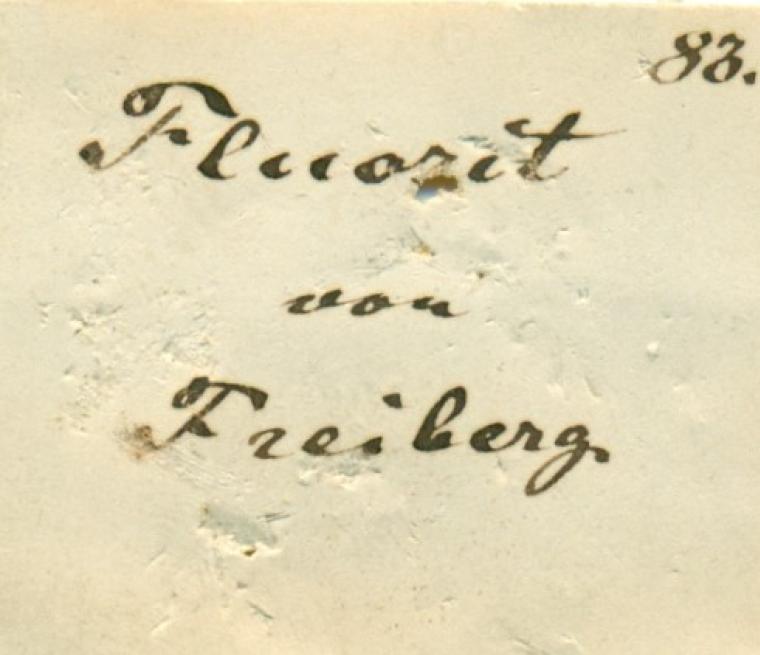 83.
Fluorit
von
Freiberg